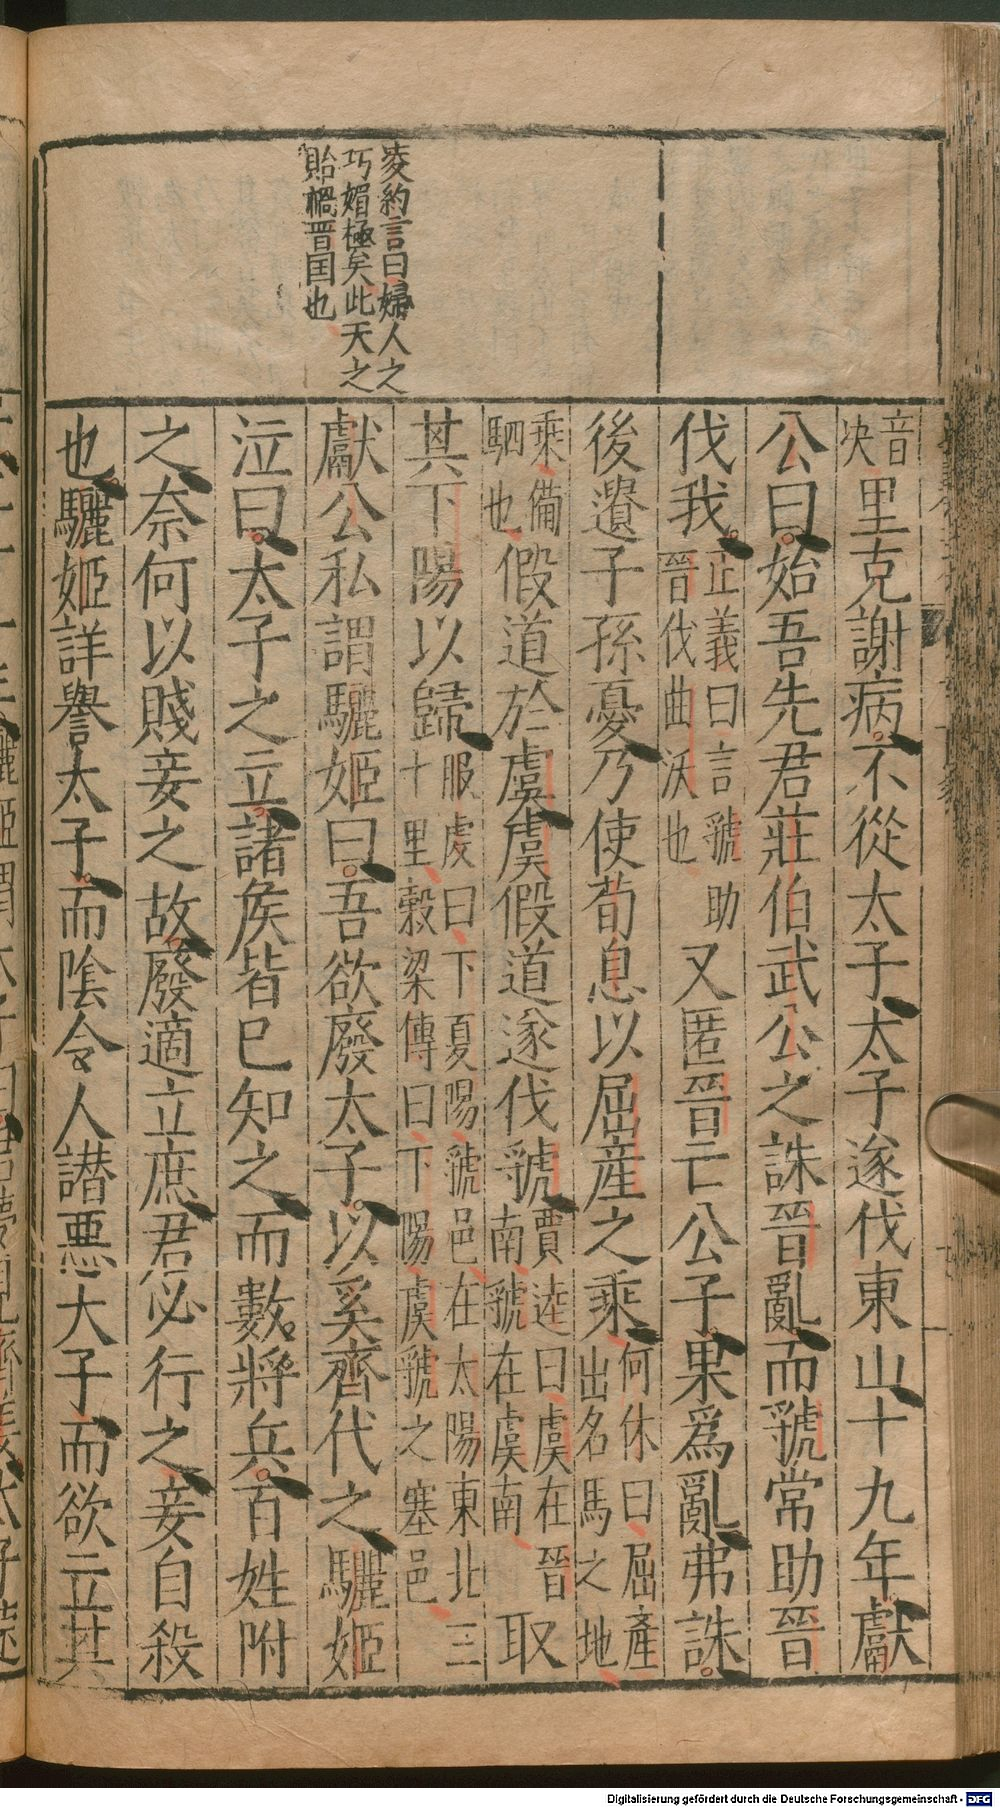 凌約言曰婦人之
巧媚極矣此天之
貽禍晋国也
音
决里克謝病不從太子太子遂伐東山十九年獻
公曰始吾先君莊伯武公之誅晉亂而虢常助晉
伐我正義曰言虢助
晉伐曲沃也又匿晉亡公子果爲亂弗誅
後遺子孫憂乃使荀息以屈産之乘何休曰屈產
出名馬之地
乘備
駟也假道於虞虞假道遂伐虢賈逵曰虞在晉
南虢在虞南取
其下陽以歸服虔曰下夏陽虢邑在太陽東北三
十里穀梁傳曰下陽虞虢之塞邑
獻公私謂驪姬曰吾欲廢太子以奚齊代之驪姬
泣曰太子之立諸侯皆已知之而數將兵百姓附
之奈何以賤妾之故廢適立庶君必行之妾自殺
也驪姬詳譽太子而陰令人譖惡大子而欲立其
Digitalisierung gefördert durch die Deutsche Forschungsgemeinschaft - DFG